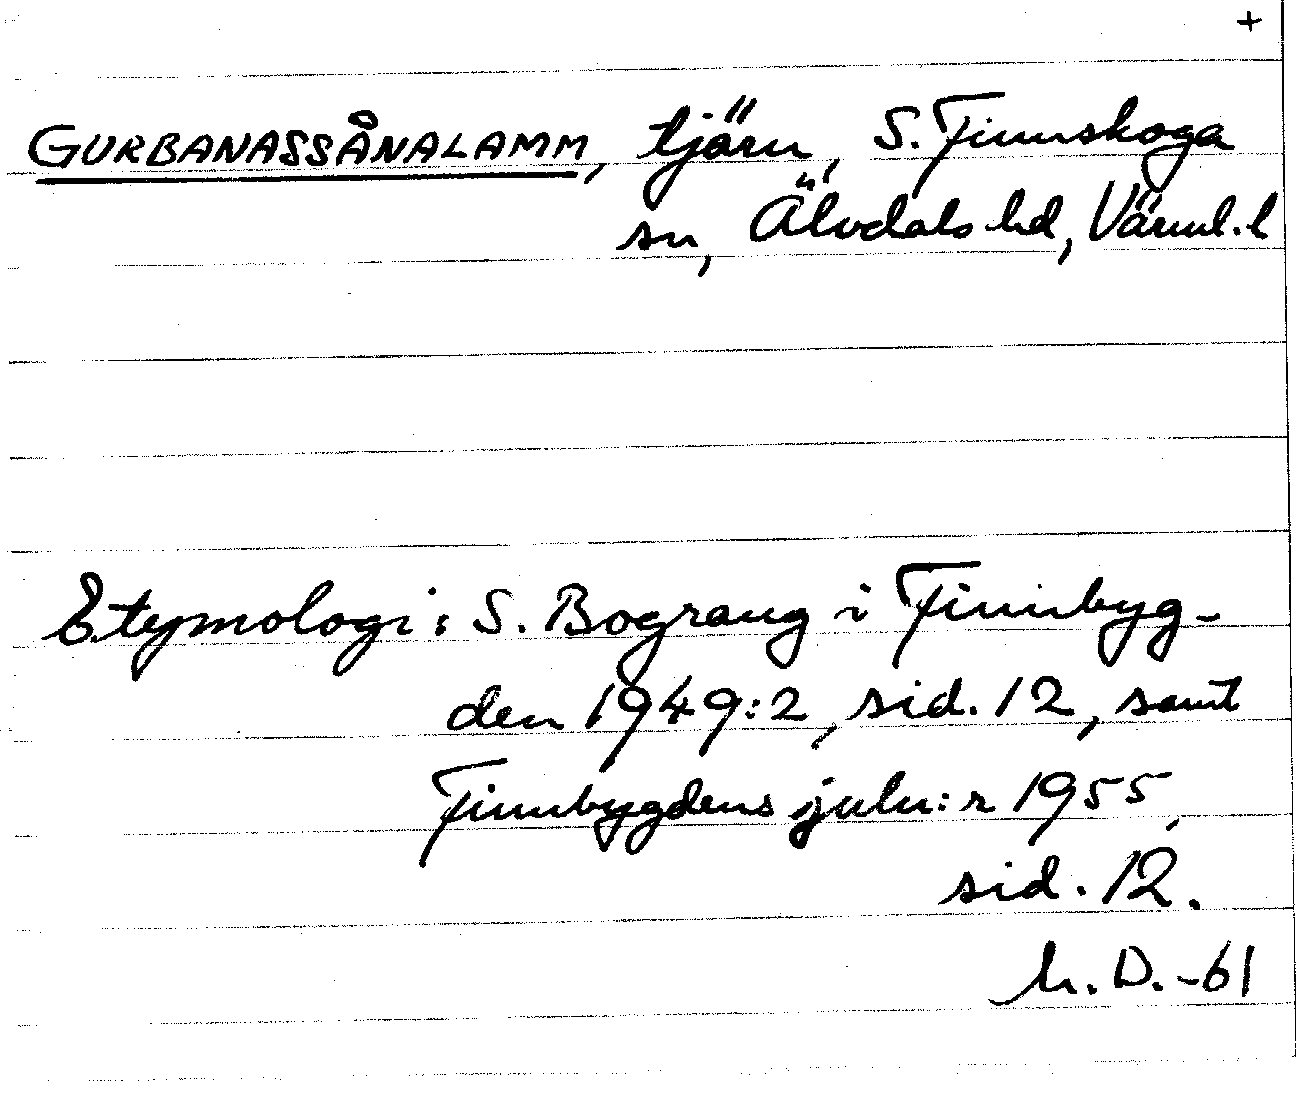 +
GURBANASSÅNALAMM, tjärn, S. Finnskoga
sn, Älvdals hd, Värml. l
Etymologi: S. Bograng i Finnbyg-
den 1949:2, sid. 12, samt
Finnbygdens juln:r 1955,
sid. 12.
h. D. -61